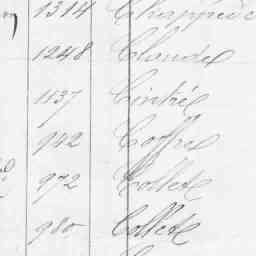 1314 Chappuis
1248 Claude
1137 Cintré
942 Coffre
972 Collet
980 Collet